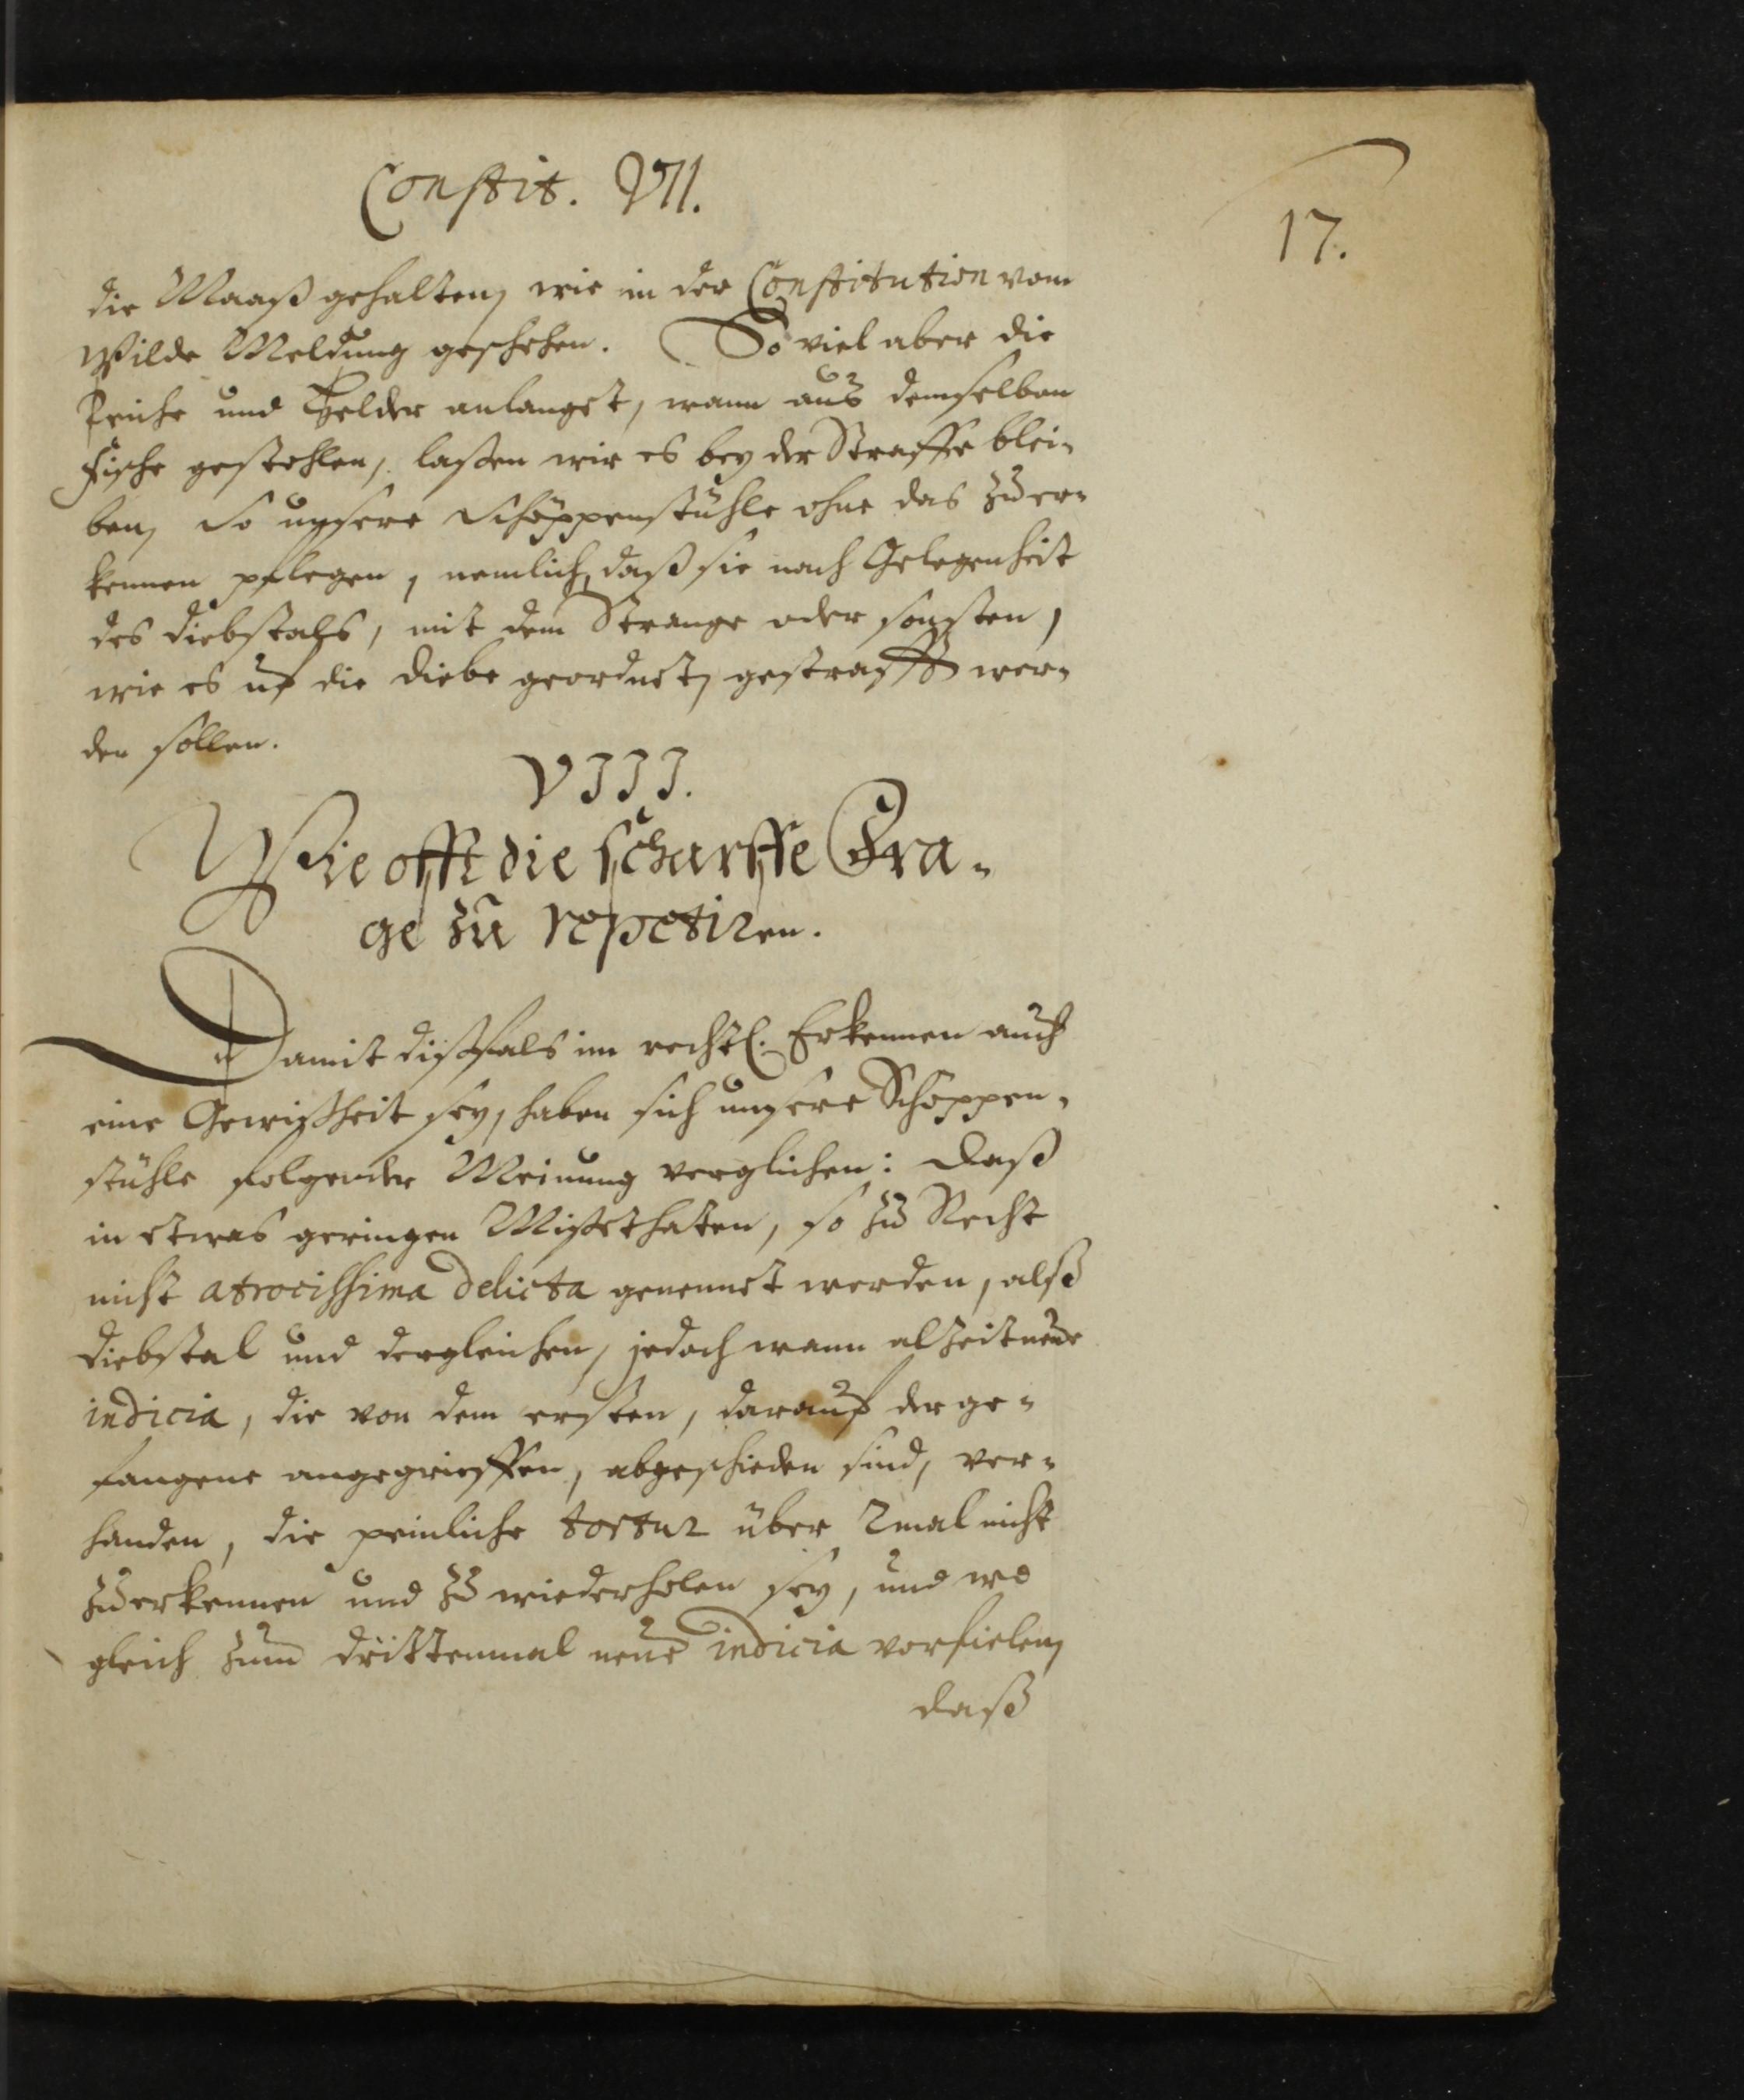 Constit. VII.
17.
die Maaß gehalten, wie in der Constitution vom
Wilde Meldung geschehen. So viel aber die
Teiche und Helder anlanget, wann aus demselben
Fische gestohlen, laßen wir es bey der Straffe blei-
ben, so unsere Schöppenstühle ohne das zu er-
kennen pflegen, nemlich, daß sie nach Gelegenheit
des diebstals, mit dem Strange oder sonsten,
wie es uf die diebe geordnet, gestrafft wer-
den sollen.
VIII.
Wie offt die scharffe Fra-
ge zu repetiren.
Damit dißfals im rechtl. Erkennen auch
eine Gewißheit sey, haben sich unsere Schöppen-
stühle folgender Meinung verglichen: daß
in etwas geringen Mißethaten, so zu Recht
nicht atrocissima delicta genennet werden, alß
diebstal und dergleichen, jedoch wann alzeit neue
indicia, die von dem ersten, darauf der ge-
fangene angegrieffen, abgeschieden sind, ver-
handen, die peinliche tortur über 2mal nicht
zu erkennen und zu wiederholen sey, und wo
gleich zum drittenmal neue indicia vorfielen,
daß